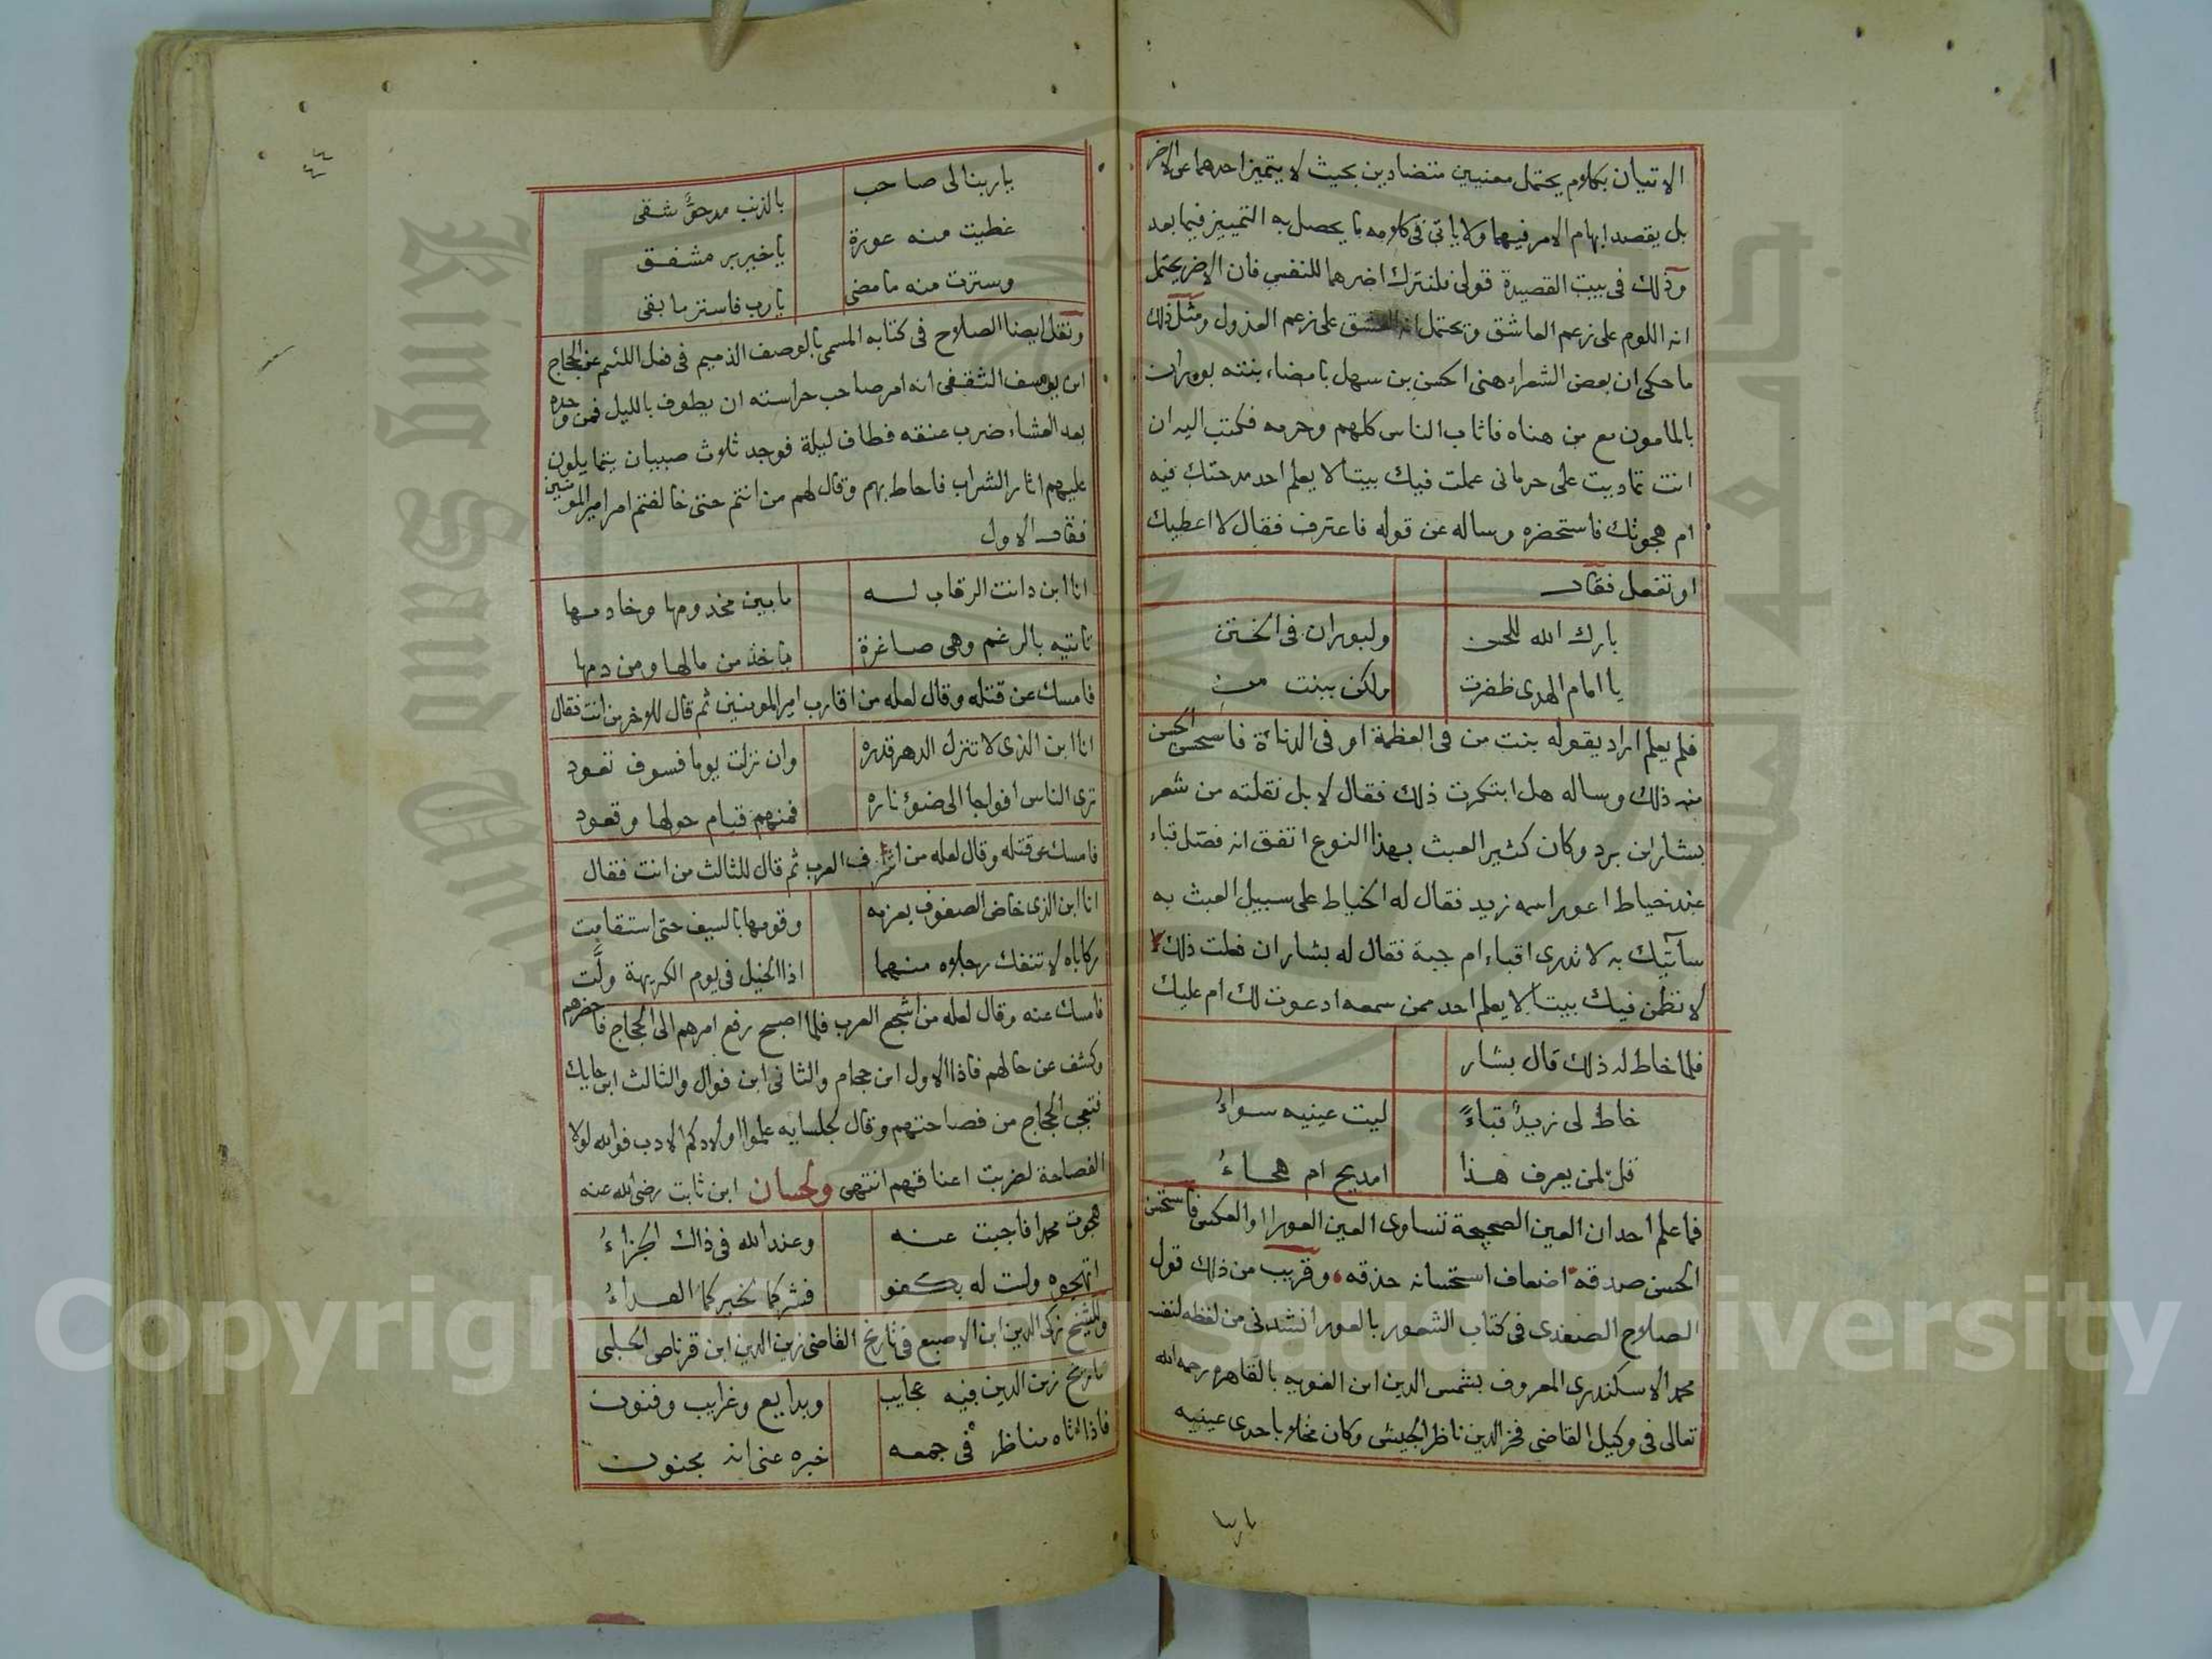 الاتيان بكلام يحتمل معنيين متضادين بحيث لا يتميز احدهما عن الاخر
بل يقصد ابهام الامر فيهما ولا ياتى فى كلامه ما يحصل به التمييز فيما بعد
وذلك فى بيت القصيدة قولى فلنترك اضرهما للنفس فان الاضر يحتمل
انه اللوم على زعم العاشق ويحتمل انه العشق على زعم العذول ومثل ذلك
ما حكى ان بعض الشعراء هنى الحسن بن سهل بامضاء بنته بوران
بالمامون مع من هناه فاثاب الناس كلهم وحرمه فكتب اليه ان
انت تماديت على حرمانى عملت فيك بيتا لا يعلم احد مدحتك فيه
ام هجوتك فاستحضره وساله عن قوله فاعترف فقال لا اعطيك
او تفعل فقال
بارك الله للحسن ولبوران فى الختن
يا امام الهدى ظفرت ولكن ببنت من
فلم يعلم اراد بقوله بنت من فى العظمة او فى الدناءة فاستحسن الحسن
منه ذلك وساله هل ابتكرت ذلك فقال لا بل نقلته من شعر
بشار ابن برد وكان كثير العبث بهذا النوع اتفق انه فصّل قباء
عند خياط اعور اسمه زيد فقال له الخياط على سبيل العبث به
سآتيك به لا تدرى اقباء ام جبة فقال له بشار ان فعلت ذلك
لانظمن فيك بيتا لا يعلم احد ممن سمعه ادعوت لك ام عليك
فلما خاط له ذلك قال بشار
خاط لى زيدٌ قباءً ليت عينيه سواءُ
قل لمن يعرف هذا امديح ام هجاءُ
فما علم احد ان العين الصحيحة تساوى العين العورا او العكس فاستحسن
الحسن صدقه اضعاف استحسانه حذقه وقريب من ذلك قول
الصلاح الصفدى فى كتاب الشعور بالعور انشدنى من لفظه لنفسه
محمد الاسكندرى المعروف بشمس الدين ابن الغويه بالقاهره رحمه الله
تعالى فى وكيل القاضى فخر الدين ناظر الجيش وكان مخلا باحدى عينيه
ياربنا
٤٤
ياربنا لى صاحب بالذنب مدحوٌّ شقى
غطيت منه عورة ياخير بر مشفق
وسترت منه ما مضى يارب فاستر ما بقى
ونقل ايضا الصلاح فى كتابه المسمى بالوصف الذميم فى فعل اللئيم عن الحجاج
ابن يوسف الثقفى انه امر صاحب حراسته ان يطوف بالليل فمن وجده
بعد العشاء ضرب عنقه فطاف ليلة فوجد ثلاث صبيان يتمايلون
عليهم اثار الشراب فاحاط بهم وقال لهم من انتم حتى خالفتم امر امير المومنين
فقال الاول
انا ابن دانت الرقاب له ما بين مخدومها وخادمها
تاتيه بالرغم وهى صاغرة ياخذ من مالها ومن دمها
فامسك عن قتله وقال لعله من اقارب امير المومنين ثم قال للاخر من انت فقال
انا ابن الذى لا تنزل الدهر قدره وان نزلت يوما فسوف تعود
ترى الناس افواجا الى ضوء ناره فمنهم قيام حولها وقعود
فامسك عن قتله وقال لعله من اشرف العرب ثم قال للثالث من انت فقال
انا ابن الذى خاض الصفوف بعزمه وقومها بالسيف حتى استقامت
ركاباه لا تنفك رجلاه منهما اذا الخيل فى يوم الكريهة ولَّت
فامسك عنه وقال لعله من اشجع العرب فلما اصبح رفع امرهم الى الحجاج فاحضرهم
وكشف عن حالهم فاذا الاول ابن حجام والثانى ابن فوال والثالث ابن حايك
فتعجب الحجاج من فصاحتهم وقال لجلسايه علموا اولادكم الادب فوالله لولا
الفصاحة لضربت اعناقهم انتهى ولحسان ابن ثابت رضى الله عنه
هجوت محمدا فاجبت عنه وعند الله فى ذاك الجزاءُ
اتهجوه ولست له بكفو فشركما لخيركما الفداءُ
وللشيخ زكى الدين ابن الاصبع فى تاريخ القاضى زين الدين ابن قرناص الحلبى
تاريخ زين الدين فيه عجايب وبدايع وغرايب وفنون
فاذا اتاه مناظر فى جمعه خبره عنى انه بجنون
Copyright © King Saud University
King Saud University